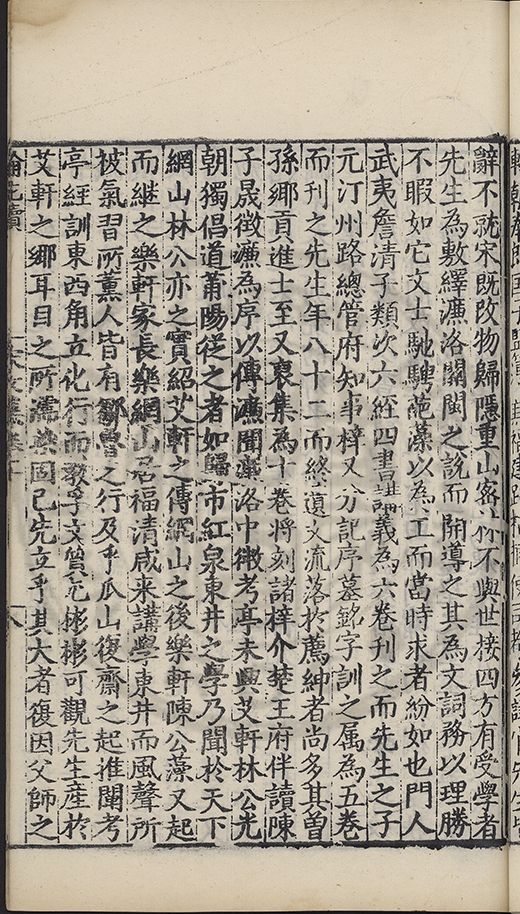 辭不就宋既改物歸隱重山密林不與世接四方有受學者
先生為敷繹濂洛關閩之說而開導之其為文詞務以理勝
不暇如它文士馳騁葩藻以為工而當時求者紛如也門人
武夷詹清子類次六經四書講義為六卷刊之而先生之子
元汀州路總管府知事梓又分記序墓銘字訓之属為五卷
而刊之先生年八十二而終遺文流落於薦紳者尚多其曾
孫鄉貢進士至又裒集為十卷將刻諸梓介楚王府伴讀陳
子晟徵濂為序以傳濂聞濂洛中微考亭未興艾軒林公光
朝獨倡道莆陽從之者如歸市紅泉東井之學乃聞於天下
網山林公亦之實紹艾軒之傳網山之後樂軒陳公藻又起
而継之樂軒家長樂網山居福清咸来講學東井而風聲所
被氣習所薰人皆有鄒魯之行及乎瓜山復齋之起推闡考
亭經訓東西角立化行而教孚文質彬彬可觀先生産於
艾軒之鄉耳目之所濡染固已先立乎其大者復因父師之
八